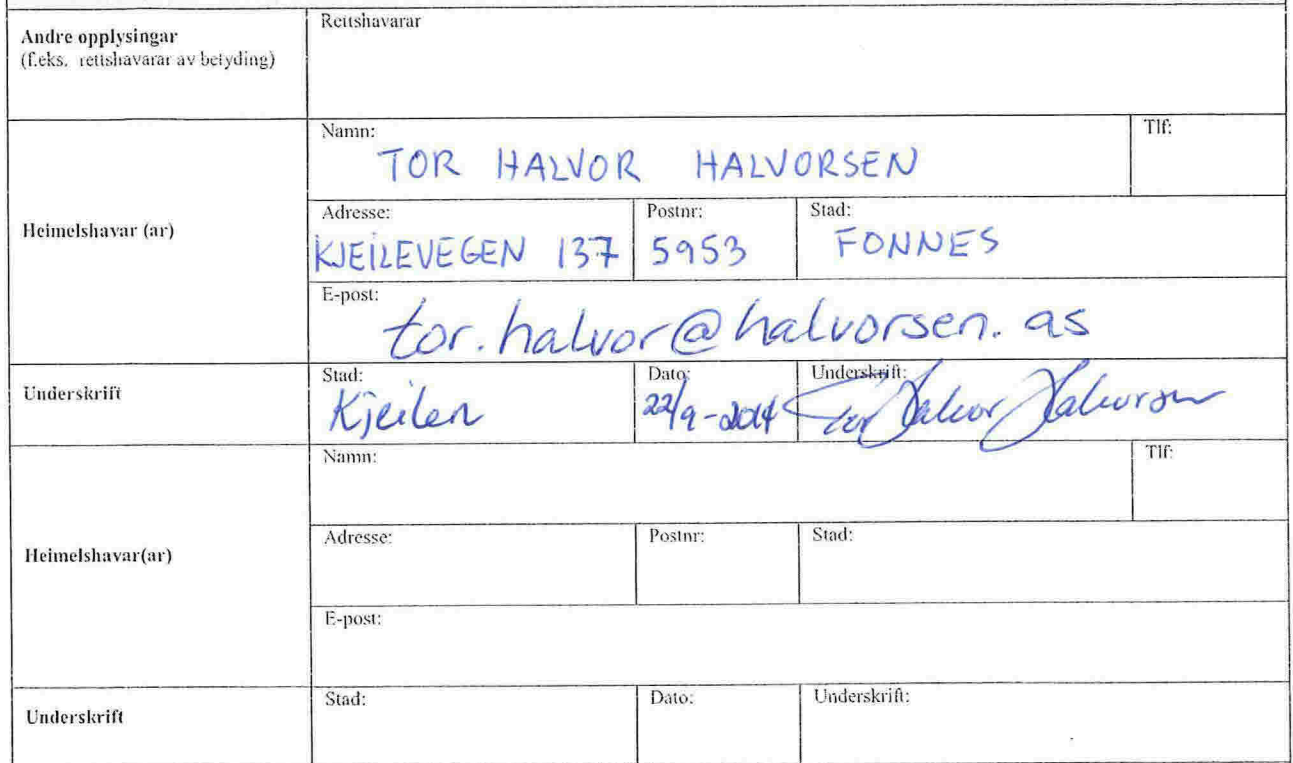 Andre opplysingar
(f.eks. rettshavarar av betyding)
Rettshavarar
Heimelshavar (ar)
Namn:
TOR HALVOR HALVORSEN
Tlf:
Adresse:
KJEILEVEGEN 137
Postnr:
5953
Stad:
FONNES
E-post:
tor.halvor@halvorsen.as
Underskrift
Stad:
Kjeilen
Dato:
22/9-2014
Underskrift:
Tor Halvor Halvorsen
Heimelshavar(ar)
Namn:
Tlf:
Adresse:
Postnr:
Stad:
E-post:
Underskrift
Stad:
Dato:
Underskrift: